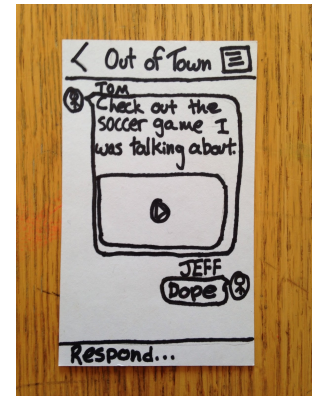 Out of Town
TOM
Check out the
soccer game I
was talking about.
JEFF
Dope
Respond...